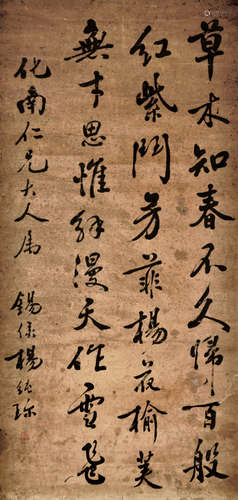 草木知春不久歸百般
紅紫鬥芳菲楊花榆莢
無才思惟解漫天作雪飛
化南仁兄大人屬 錫侯楊